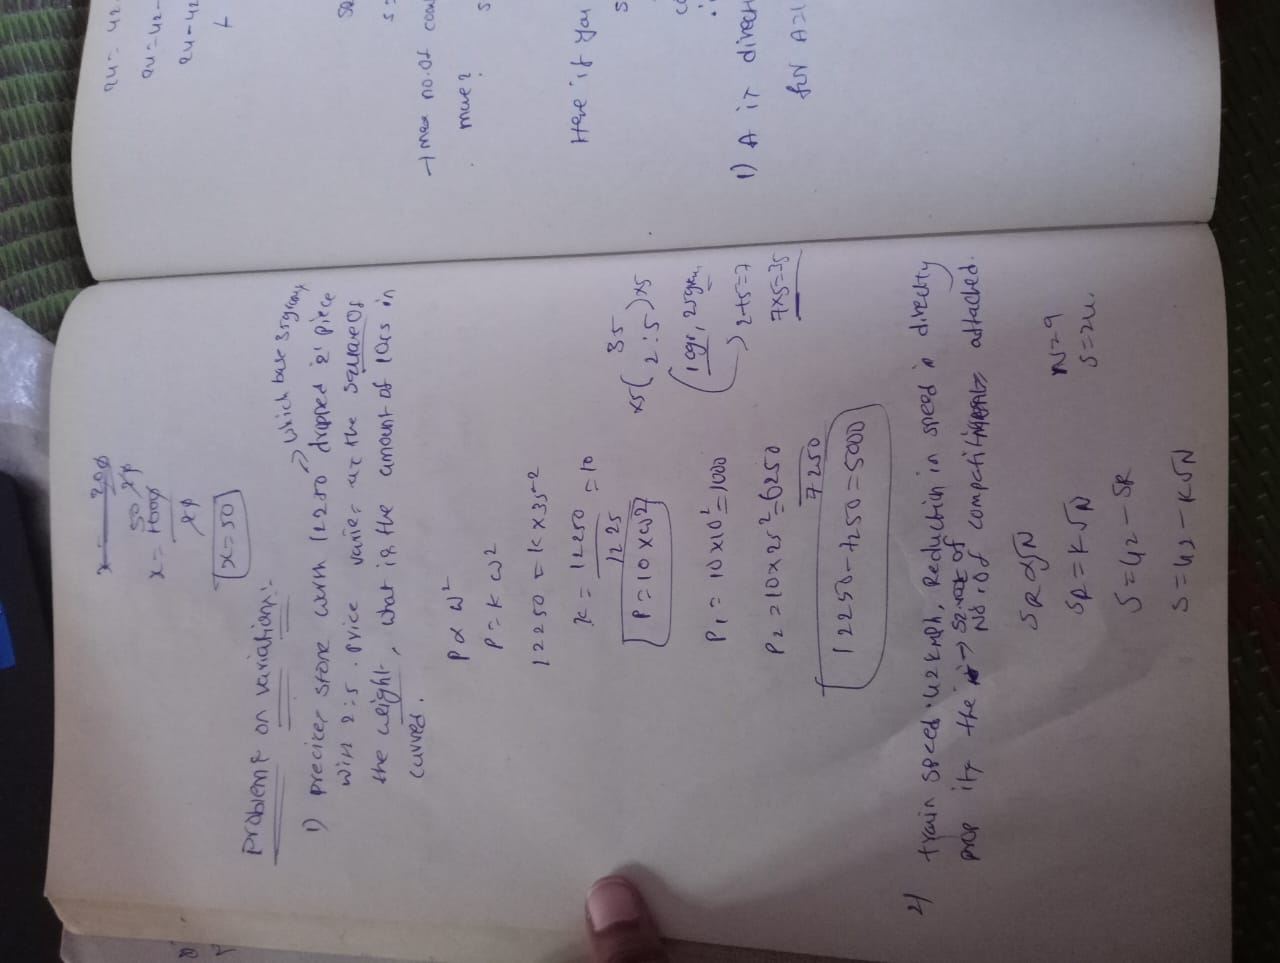 x = 200
50
x = 1000
20
x = 50
Problems on variation:-
1) precious stone worth 12250 → which base 35 grams,
dropped 2 piece
win 2:5. price varies as the square of
the weight, what is the amount of loss in
curved.
P ∝ ω²
P = k ω²
12250 = k × 35^2
k = 12250 = 10
1225
P = 10 × ω²
35
×5( 2:5 )×5
10gr, 25gm,
2+5=7
7×5=35
P₁ = 10×10² = 1000
P₂ = 10×25² = 6250
7250
12250-7250=5000
2) train speed 42 kmph, Reduction in speed is directly
prop its the → Sq. root of
No. of compartments attached.
SR ∝ √N
N=9
SR = K√N
S=24
S = 42 - SR
S = 42 - K√N
24 = 42
24 = 42-
24-42
→ max no. of
move?
Here if you
1) A is direct
for A=1